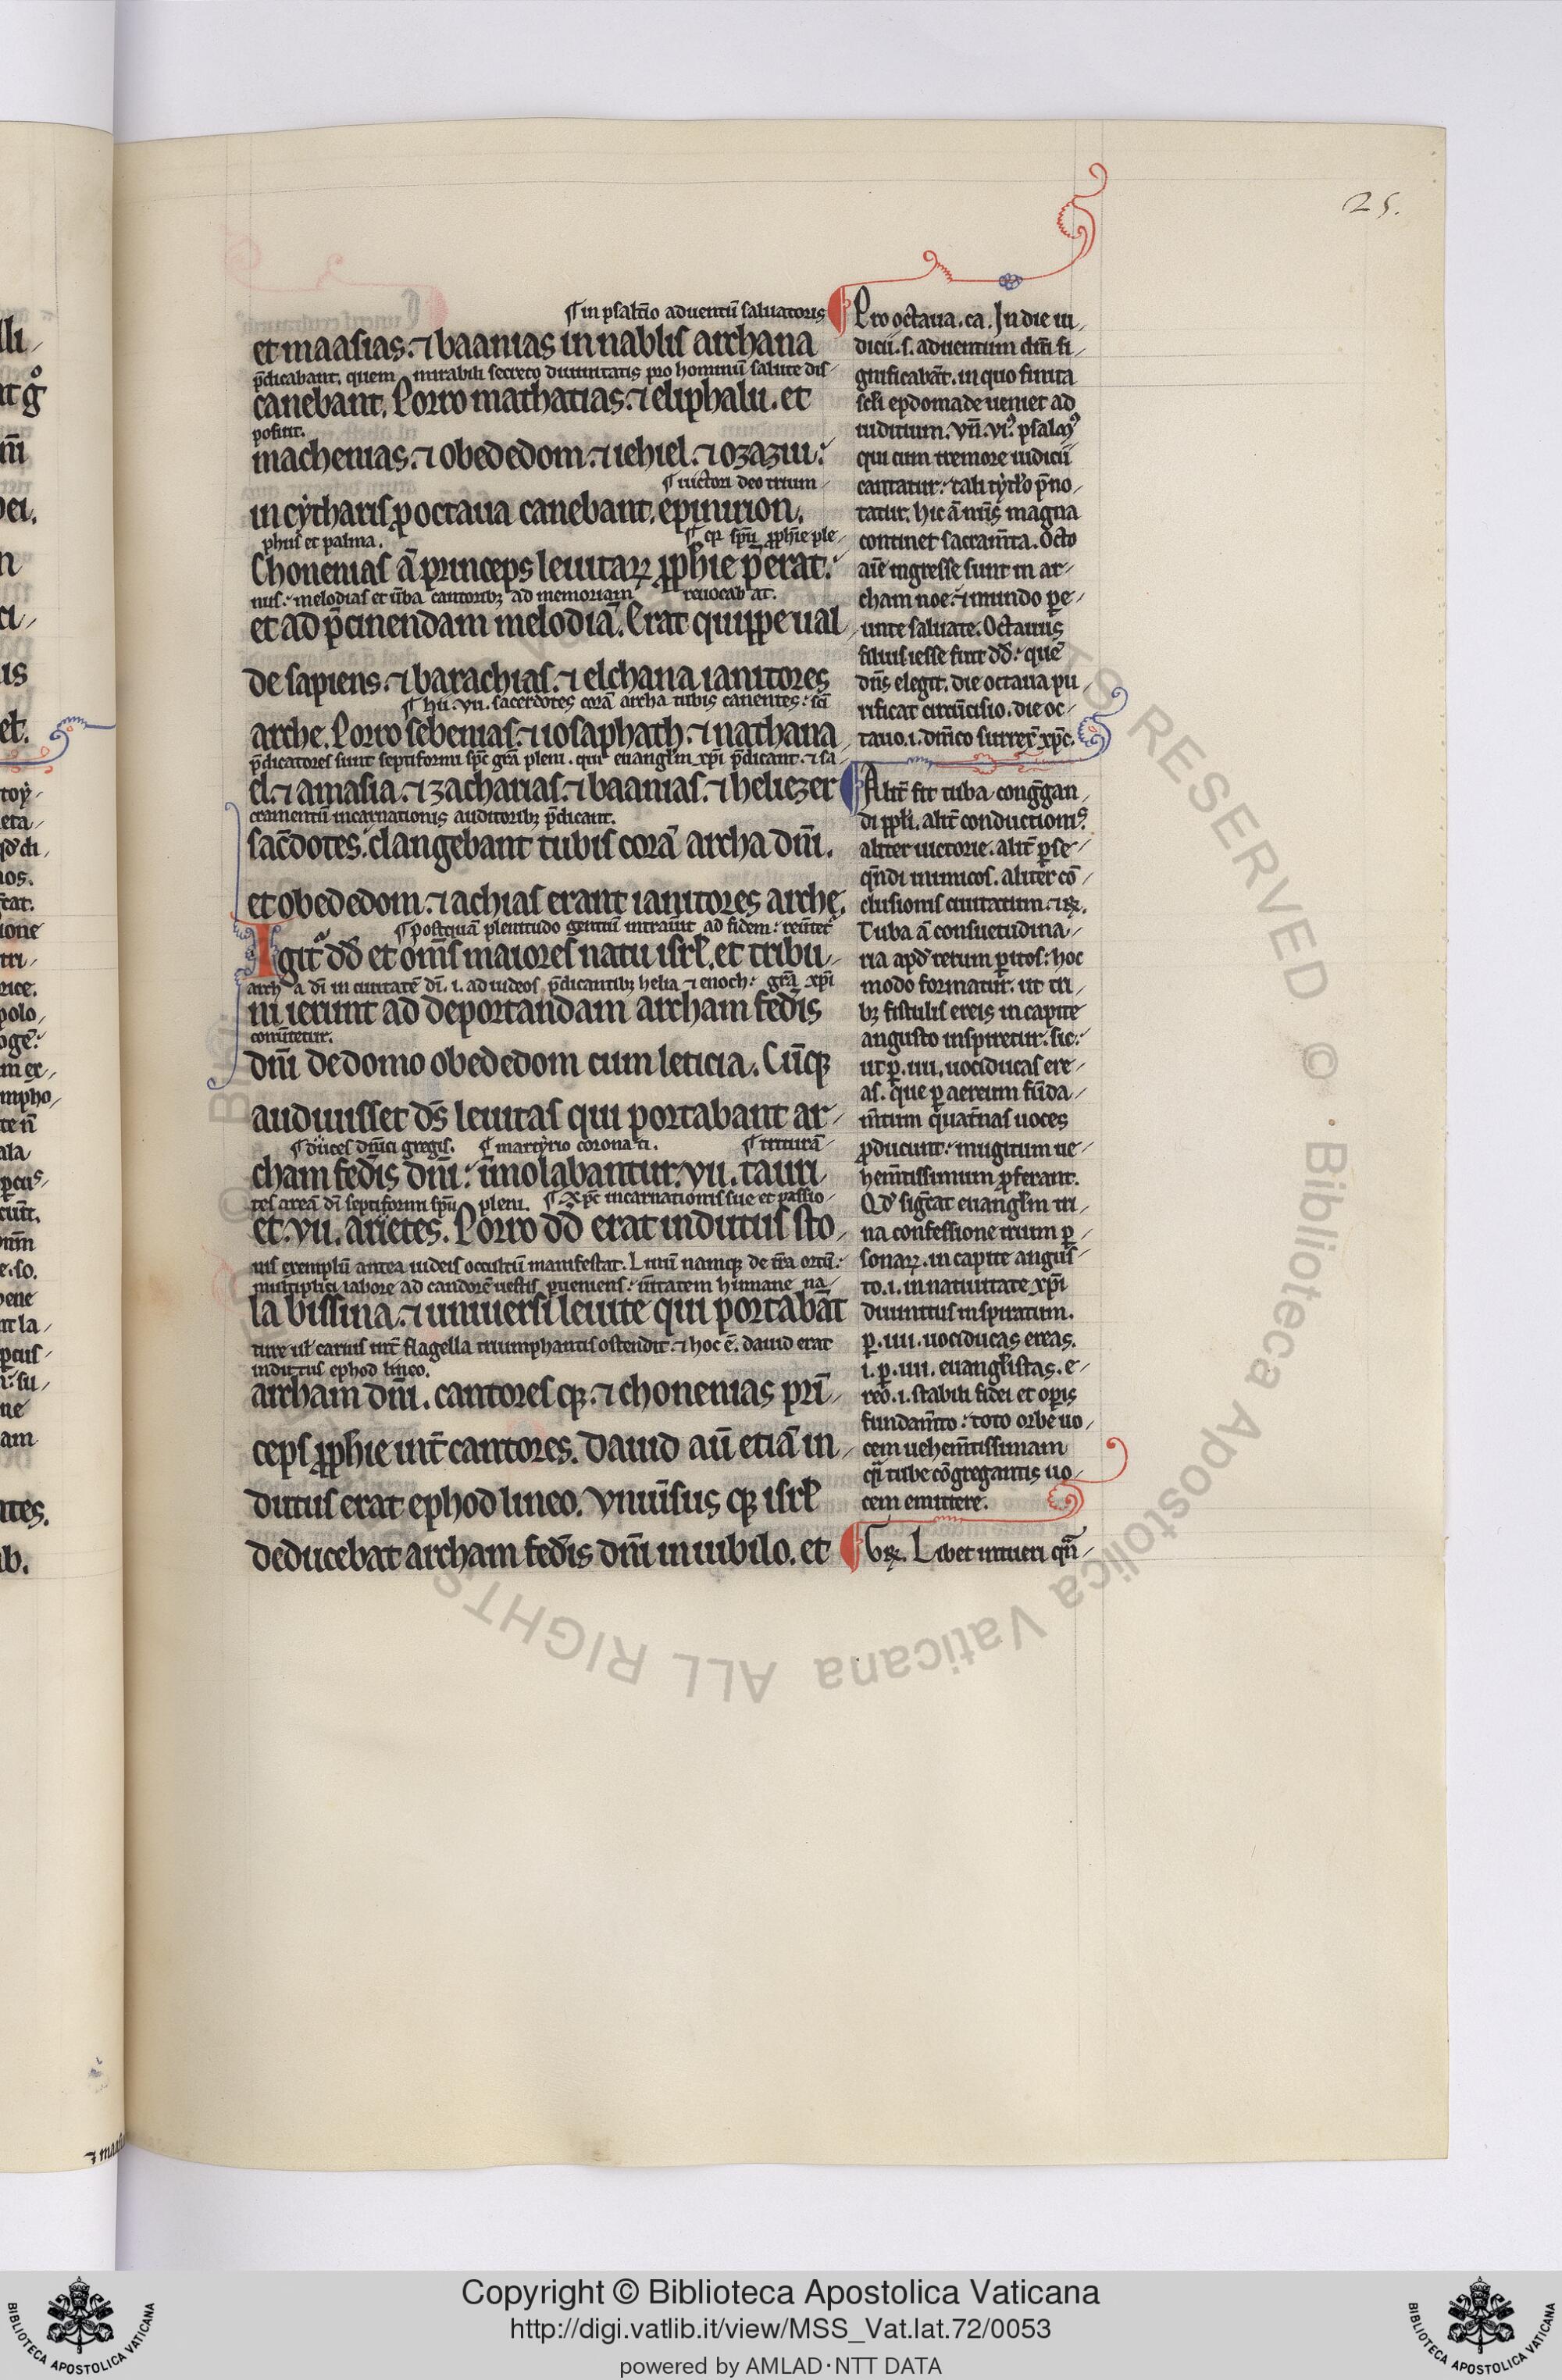 25.
¶ in psalt̄io aduentū saluatoris
et maasias. ⁊ baanias in nablis archana
p̄dicabant. quem mirabili secreto diuinitatis pro hominū salute dis
canebant. Porro mathatias. ⁊ eliphalu. et
posuit.
machenias. ⁊ obededom. ⁊ iehiel. ⁊ ozaziu.
¶ uictori deo trium
in cytharis ꝓ octaua canebant. epinition.
phus et palma.
Chonenias ā princeps leuitaꝝ ꝓph̄ie p̄erat.
nus. melodias et ūba cantoribꝫ ad memoriam reuocabat.
et ad p̄cinendam melodiā. Erat quippe ual
de sapiens. ⁊ barachias. ⁊ elchana ianitores
¶ hii .vii. sacerdotes corā archa tubis canentes. sc̄i
arche. Porro sebenias. ⁊ iosaphath. ⁊ nathana
p̄dicatores sunt septiformi sp̄c gr̄a pleni. qui euangl̄m xp̄i p̄dicant. ⁊ sa
el. ⁊ amasia. ⁊ zacharias. ⁊ baanias. ⁊ heliezer
cramentū incarnationis auditoribꝫ p̄dicant.
sac̄dotes. clangebant tubis corā archa dn̄i.
et obededom. ⁊ achias erant ianitores arche.
¶ postquā plenitudo gentiū intrau̅it ad fidem
Igit᷑ dd̄ et om̄s maiores natu isrl̄. et tribu
archa dī in ciuitatē dī. i. ad iudeos p̄dicantibꝫ helia ⁊ enoch. gr̄a xp̄i
ni ierunt ad deportandam archam fed̄is
conūtetur.
dn̄i de domo obededom cum leticia. Cūqꝫ
adiuuisset ds̄ leuitas qui portabant ar
¶ duces dn̄ici gregis. ¶ martyrio coronati. ¶ triturā
cham fed̄is dn̄i. īmolabantur .vii. tauri
tes areā dī septiformi sp̄u pleni. ¶ Xp̄c incarnationis sue et passio
et .vii. arietes. Porro dd̄ erat indutus sto
nis exemplū antea iudeis occultū manifestat. Linū namqꝫ de t̄ra ortū.
multiplici labore ad candorē uestis ꝑueniens. ūitatem humane na
la bissina. ⁊ uniuersi leuite qui portabāt
ture ul̄ carnis int̄ flagella triumphantis ostendit. ⁊ hoc ē. dauid erat
indutus ephod lineo.
archam dn̄i. cantores qꝫ. ⁊ chonenias prī
ceps ꝓph̄ie int̄ cantores. Dauid aū etiā in
dutus erat ephod lineo. Vniūsus qꝫ isrl̄
deducebat archam fed̄is dn̄i in iubilo. et
Pro octaua. ca. In die iu
dicii .s. aduentum dn̄i si
gnificabāt. in quo finita
scl̄i epdomade ueniet ad
iuditium. Vn̄ .vi. psalmꝰ
qui cum tremore iudicii
cantatur. tali tytl̄o p̄no
tatur. hic ā nūs magna
continet sacram̄ta. Octo
aīe ingresse sunt in ar
cham noe. ⁊ mundo pe
unte saluate. Octauus
filius iesse fuit dd̄. quē
dn̄s elegit. die octaua pu
rificat circūcisio. die oc
tauo .i. dn̄ico surrex̄ xp̄c.
Alit̄ fit tuba cong̅gan
di ppl̄i. alit̄ conductionis
aliter uictorie. alit̄ ꝑse
qn̄di inimicos. aliter cō
clusionis ciuitatum. ⁊ rꝫ.
Tuba ā consuetudina
ria apd̄ rerum ꝑitos. hoc
modo formatur. ut tri
bꝫ fistulis ereis in capite
angusto inspiretur. sic.
ut ꝑ .iiii. uociducas ere
as. que ꝑ aereum fūda
m̄tum quat̄nas uoces
ꝓducunt. mugitum ue
hem̄tissimum ꝓferant.
Qd̄ sigc̄at euangl̄m tri
na confessione trium ꝑ
sonaꝝ. in capite angus
to .i. in natiuitate xp̄i
diuinitus inspiratum.
ꝑ .iiii. uociducas ereas.
.i. ꝑ .iiii. euangl̄istas. e
reo .i. stabili fidei et oꝑis
fundam̄to. toto orbe uo
cem uehem̄tissimam
q̄i tube cōgregantis uo
cem emittere.
Libet intueri qn̄
© Biblioteca Apostolica Vaticana ALL RIGHTS RESERVED
Copyright © Biblioteca Apostolica Vaticana
http://digi.vatlib.it/view/MSS_Vat.lat.72/0053
powered by AMLAD·NTT DATA
BIBLIOTECA APOSTOLICA VATICANA
BIBLIOTECA APOSTOLICA VATICANA